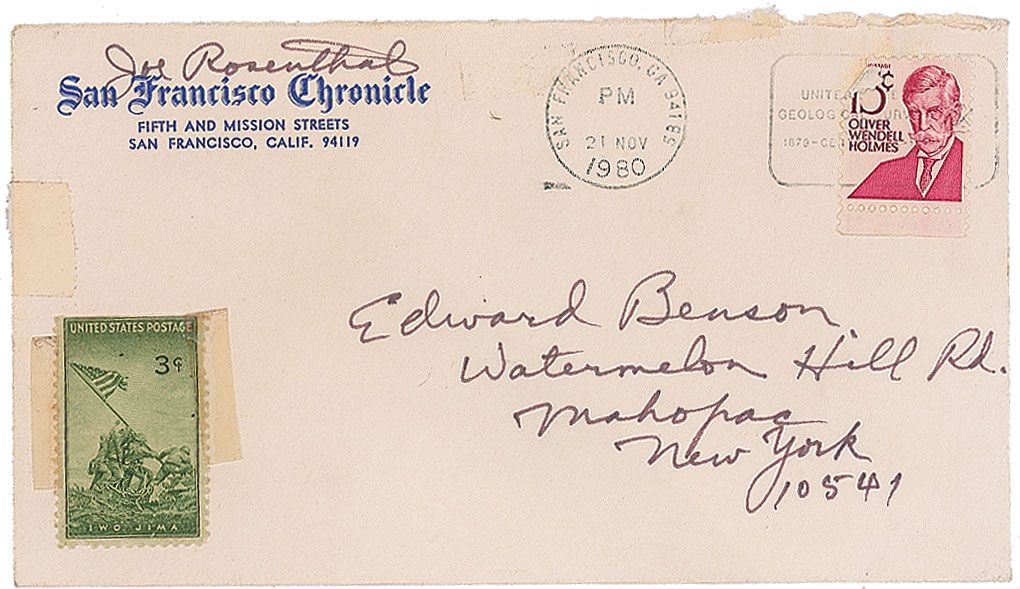 Joe Rosenthal
San Francisco Chronicle
FIFTH AND MISSION STREETS
SAN FRANCISCO, CALIF. 94119
SAN FRANCISCO, CA 94189
PM
21 NOV
1980
UNITE
GEOLOGIC URV
1879-CE
15¢
OLIVER
WENDELL
HOLMES
Edward Benson
Watermelon Hill Rd.
Mahopac
New York
10541
UNITED STATES POSTAGE
3¢
IWO JIMA